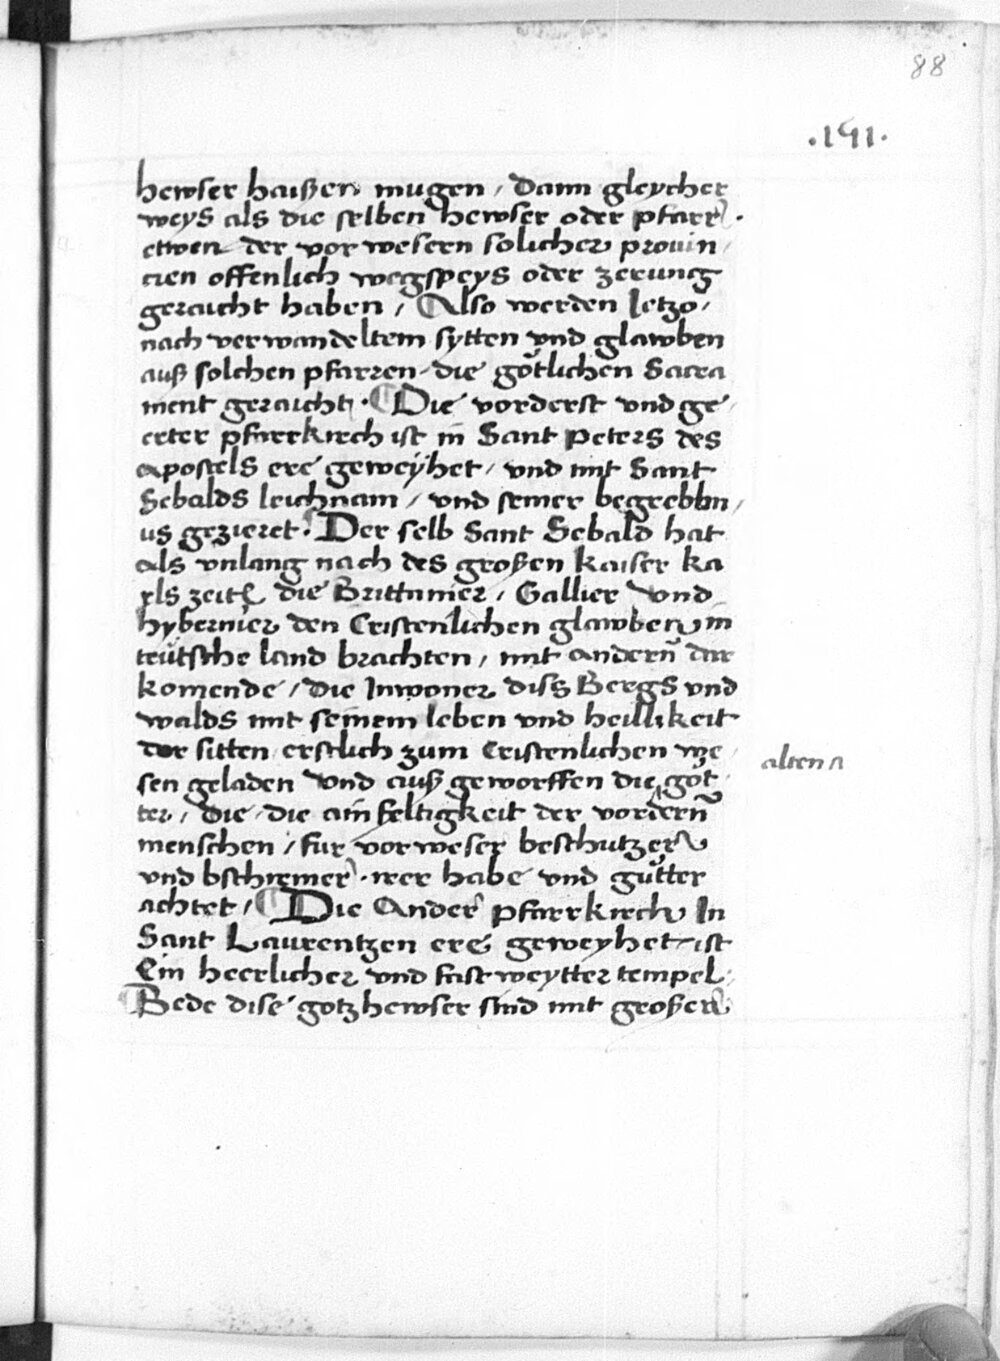 88
.191.
hewser haißen mugen / dann gleycher
weys als die selben hewser oder pfarr .
etwen der vorwesern solicher prouin /
cien offenlich wegspeys oder zerung
geraicht haben / Also werden Ietzo /
nach verwandeltem sytten vnd glawben
auß solchen pfarren die götlichen Sacra
ment geraicht · Die vorderst vnd ge /
erter pfarrkirch ist in Sant Peters des
apostels ere geweyhet / vnd mit Sant
Sebalds leichnam / vnd seiner begrebbn /
us gezieret · Der selb Sant Sebald hat
als vnlang nach des großen kaiser ka
rls zeit die Brittanier / Gallier vnd
hybernier den Cristenlichen glawben in
teutsche land brachten / mit andern dar
komende / die Inwoner diss Bergs vnd
walds mit seinem leben vnd heilikeit
der sitten erstlich zum Cristenlichen we /
sen geladen vnd auß geworffen die göt /
alten
ter / die / die ainfeltigkeit der vordern
menschen / fur vorweser beschutzer
vnd bschirmer · irer habe vnd gütter
achtet / Die Ander pfarrkirch In
Sant Laurentzen ere geweyhet ist
Ein heerlicher vnd fast weytter tempel
Bede dise gotzhewser sind mit großer